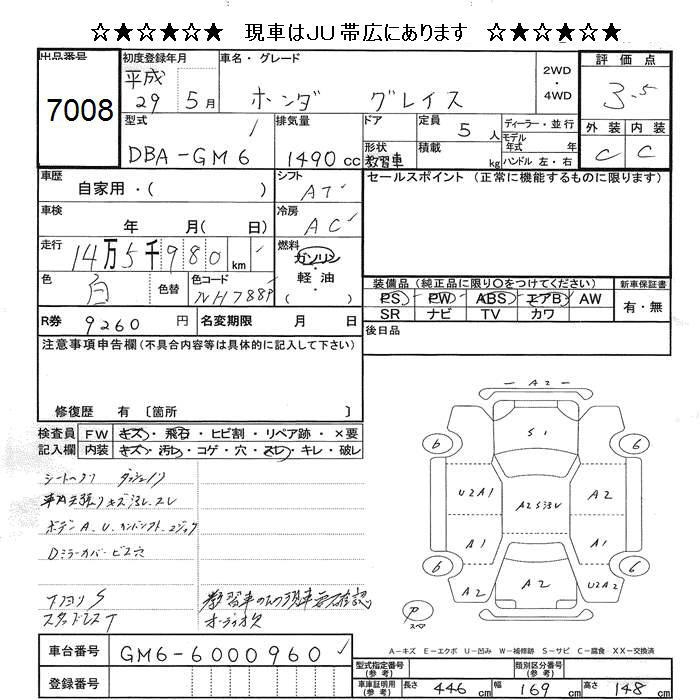 ☆★☆★☆★ 現車はJU帯広にあります ☆★☆★☆★
出品番号
7008
初度登録年月
平成
29 5月
車名・グレード
ホンダ グレイス
2WD
・
4WD
評価点
3.5
外装 内装
C C
型式
DBA-GM6
排気量
1490cc
ドア
形状
教習車
定員
5人
積載
kg
ディーラー・並行
モデル
年式 年
ハンドル 左・右
車歴
自家用・( )
シフト
AT
セールスポイント (正常に機能するものに限ります)
車検
年 月( 日)
冷房
AC
走行
14万5千980km
燃料
ガソリン
・
軽油
( )
色
白
色替
色コード
NH788P
装備品(純正品に限り○をつけてください)
PS PW ABS エアB AW
SR ナビ TV カワ
新車保証書
有・無
R券 9260円
名変期限 月 日
後日品
注意事項申告欄(不具合内容等は具体的に記入して下さい)
修復歴 有 〔箇所 〕
検査員
記入欄
FW キズ・飛石・ヒビ割・リペア跡・×要
内装 キズ・汚れ・コゲ・穴・スレ・キレ・破レ
車内天張りキズ汚レ、スレ
Dミラーカバービス穴
教習車の為現車要確認
オーディオ欠
A2
S1
6
6
U2A1
A2S汚レ
A2
A1
A1
6
6
A2
A2
U2A2
ア
スペア
A-キズ E-エクボ U-凹み W-補修跡 S-サビ C-腐食 XX-交換済
車台番号 GM6-6000960
登録番号
型式指定番号
(参考)
類別区分番号
(参考)
車庫証明用
(参考)
長さ 446cm
幅 169cm
高さ 148cm